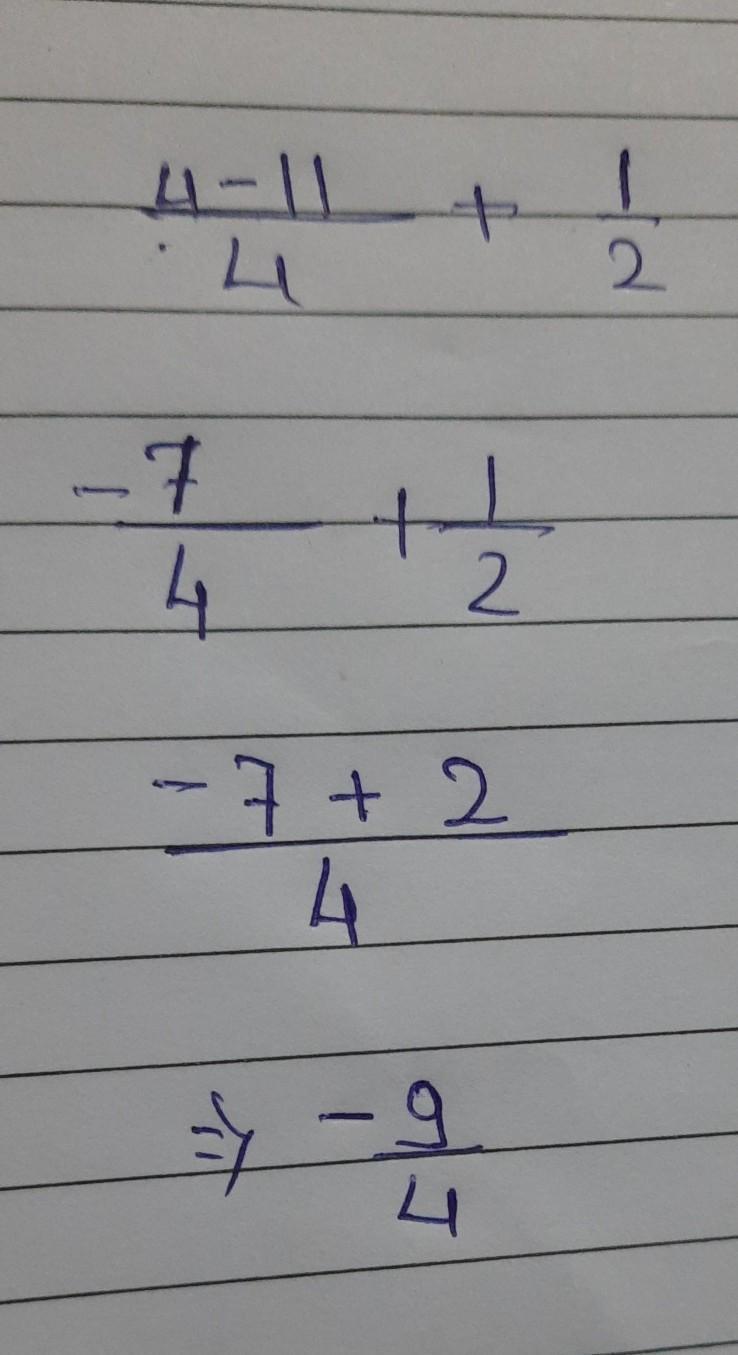 4-11/4 + 1/2
-7/4 + 1/2
-7 + 2/4
⇒ -9/4